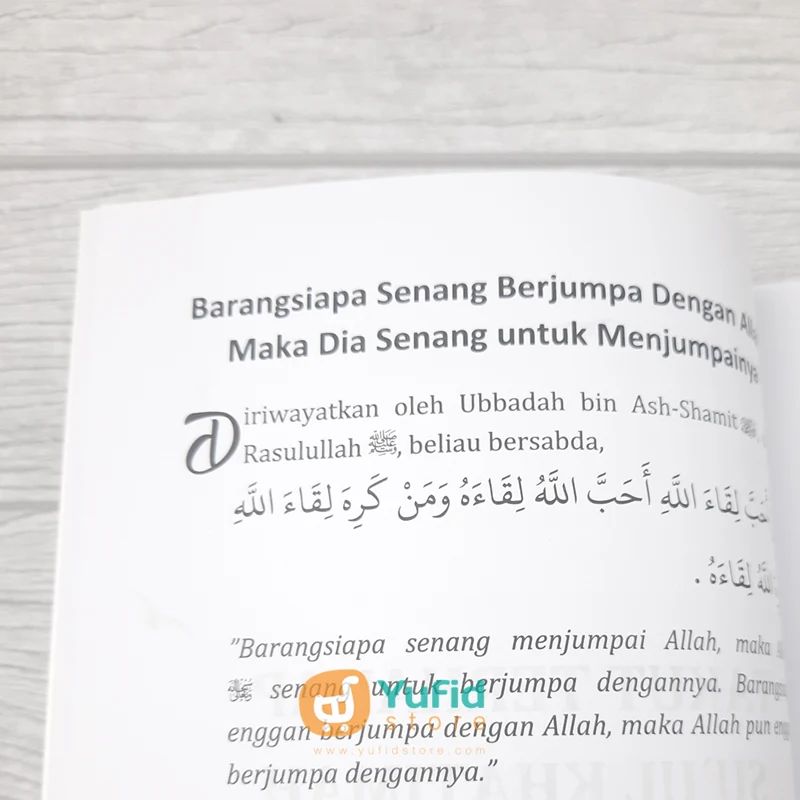 Barangsiapa Senang Berjumpa Dengan
Maka Dia Senang untuk Menjumpainya
Diriwayatkan oleh Ubbadah bin Ash-Shamit
Rasulullah ﷺ, beliau bersabda,
لِقَاءَ اللَّهِ أَحَبَّ اللَّهُ لِقَاءَهُ وَمَنْ كَرِهَ لِقَاءَ اللَّهِ
لِقَاءَهُ .
"Barangsiapa senang menjumpai Allah, maka
senang untuk berjumpa dengannya.
enggan berjumpa dengan Allah, maka Allah pun
berjumpa dengannya."
Yufid
store
www.yufidstore.com